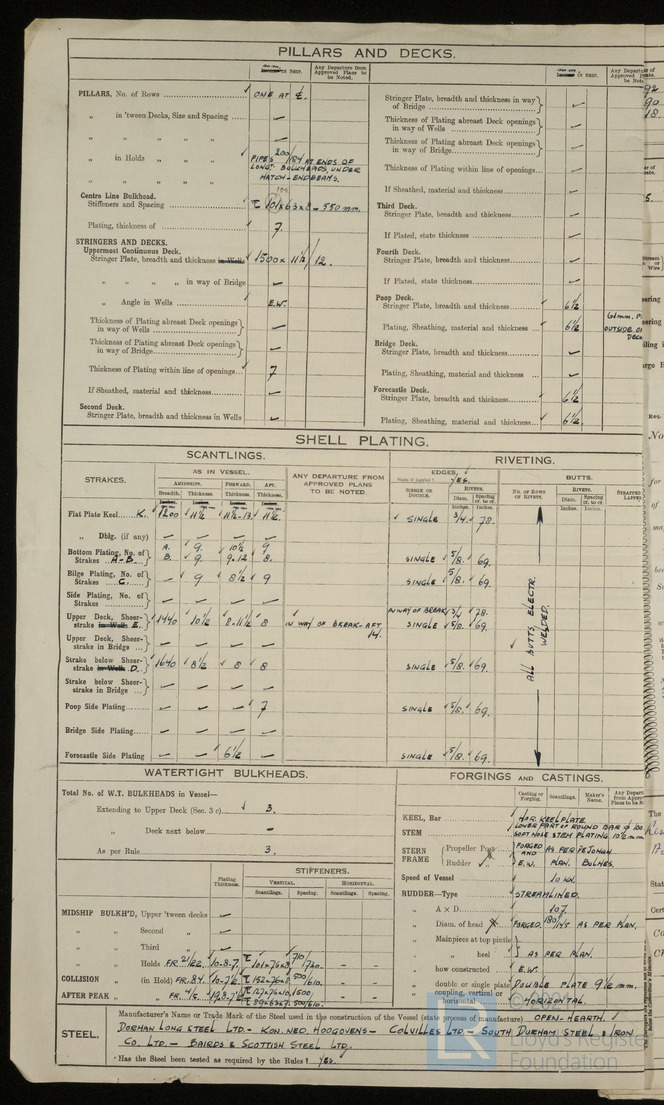 PILLARS AND DECKS.
IN SHIP.
Any Departure from Approved Plans to be Noted.
PILLARS, No. of Rows ONE AT ℄.
" in 'tween Decks, Size and Spacing —
" " " " —
" in Holds " " PIPES 200/184 AT ENDS OF LONG: BULKHEADS, UNDER HATCH-ENDBEAMS.
" " " "
Centre Line Bulkhead.
Stiffeners and Spacing 101x63x8 - 550 mm.
Plating, thickness of 7.
STRINGERS AND DECKS.
Uppermost Continuous Deck.
Stringer Plate, breadth and thickness in Wells 1500 x 11½/12.
" " " " in way of Bridge —
" Angle in Wells E.W.
Thickness of Plating abreast Deck openings in way of Wells —
Thickness of Plating abreast Deck openings in way of Bridge —
Thickness of Plating within line of openings... 7
If Sheathed, material and thickness —
Second Deck.
Stringer Plate, breadth and thickness in Wells —
IN SHIP.
Stringer Plate, breadth and thickness in way of Bridge —
Thickness of Plating abreast Deck openings in way of Wells —
Thickness of Plating abreast Deck openings in way of Bridge —
Thickness of Plating within line of openings... —
If Sheathed, material and thickness —
Third Deck.
Stringer Plate, breadth and thickness —
If Plated, state thickness —
Fourth Deck.
Stringer Plate, breadth and thickness —
If Plated, state thickness —
Poop Deck.
Stringer Plate, breadth and thickness 6½
Plating, Sheathing, material and thickness ... 6½
OUTSIDE OF
Bridge Deck.
Stringer Plate, breadth and thickness —
Plating, Sheathing, material and thickness ... —
Forecastle Deck.
Stringer Plate, breadth and thickness 6½
Plating, Sheathing, material and thickness... 6½
SHELL PLATING.
SCANTLINGS.
RIVETING.
STRAKES.
AS IN VESSEL.
AMIDSHIPS. FORWARD. AFT.
Breadth. Thickness. Thickness. Thickness.
ANY DEPARTURE FROM APPROVED PLANS TO BE NOTED
EDGES, YES.
SINGLE OR DOUBLE.
RIVETS.
Diam. Spacing cr. to cr.
Inches. Inches.
BUTTS.
No. OF ROWS OF RIVETS.
RIVETS.
Diam. Spacing cr. to cr.
Inches. Inches.
STRAPPED
Flat Plate Keel.... K. 1200 11½ 11½-13. 11½. SINGLE 3/4. 78.
" Dblg. (if any) — — — —
Bottom Plating, No. of Strakes A-B. A. 9. 10½ 9
B. 9. 9-12 8. SINGLE 5/8. 69.
Bilge Plating, No. of Strakes C. — 9 8½ 9 SINGLE 5/8. 69.
Side Plating, No. of Strakes — — — —
Upper Deck, Sheer-strake in Wells E. 1440 10½ 8-11½ 8 IN WAY OF BREAK-AFT 14. IN WAY OF BREAK 3/4 78.
SINGLE 5/8. 69.
Upper Deck, Sheer-strake in Bridge — — — —
Strake below Sheer-strake in Wells D. 1640 8½ 8 8 SINGLE 5/8. 69.
Strake below Sheer-strake in Bridge — — — —
Poop Side Plating — — — 7 SINGLE 5/8. 69.
Bridge Side Plating — — — —
Forecastle Side Plating — — 6½ — SINGLE 5/8. 69.
ALL BUTTS ELECTR. WELDED.
WATERTIGHT BULKHEADS.
Total No. of W.T. BULKHEADS in Vessel—
Extending to Upper Deck (Sec. 3 c) 3.
" Deck next below —
" As per Rule 3.
STIFFENERS.
Plating Thickness.
VERTICAL. HORIZONTAL.
Scantlings. Spacing. Scantlings. Spacing.
MIDSHIP BULKH'D, Upper 'tween decks —
" " Second " —
" " Third " —
" " Holds
COLLISION " (in Hold) FR. 84.
AFTER PEAK " "
FORGINGS AND CASTINGS.
Casting or Forging. Scantlings. Maker's Name.
KEEL, Bar HOR. KEELPLATE.
STEM LOWER PART OF ROUND BAR
SOFT NOSE STEM PLATING
STERN FRAME Propeller Post FORGED AND AS PER DE JONGH.
Rudder " E.W. PLAN. BOLNES.
Speed of Vessel 10 kn.
RUDDER—Type STREAMLINED.
" A × D 107.
" Diam. of head FORGED. 180/145 AS PER PLAN.
" Mainpiece at top pintle
" " heel AS PER PLAN.
" how constructed E.W.
" double or single plate DOUBLE PLATE 9½ mm.
" coupling, vertical or horizontal HORIZONTAL.
STEEL.
Manufacturer's Name or Trade Mark of the Steel used in the construction of the Vessel (state process of manufacture) OPEN-HEARTH.
DORMAN LONG STEEL LTD - KON. NED. HOOGOVENS - COLVILLES LTD - SOUTH DURHAM STEEL & IRON
CO. LTD. - BAIRDS & SCOTTISH STEEL LTD.
Has the Steel been tested as required by the Rules? YES.
Lloyd's Register
Foundation